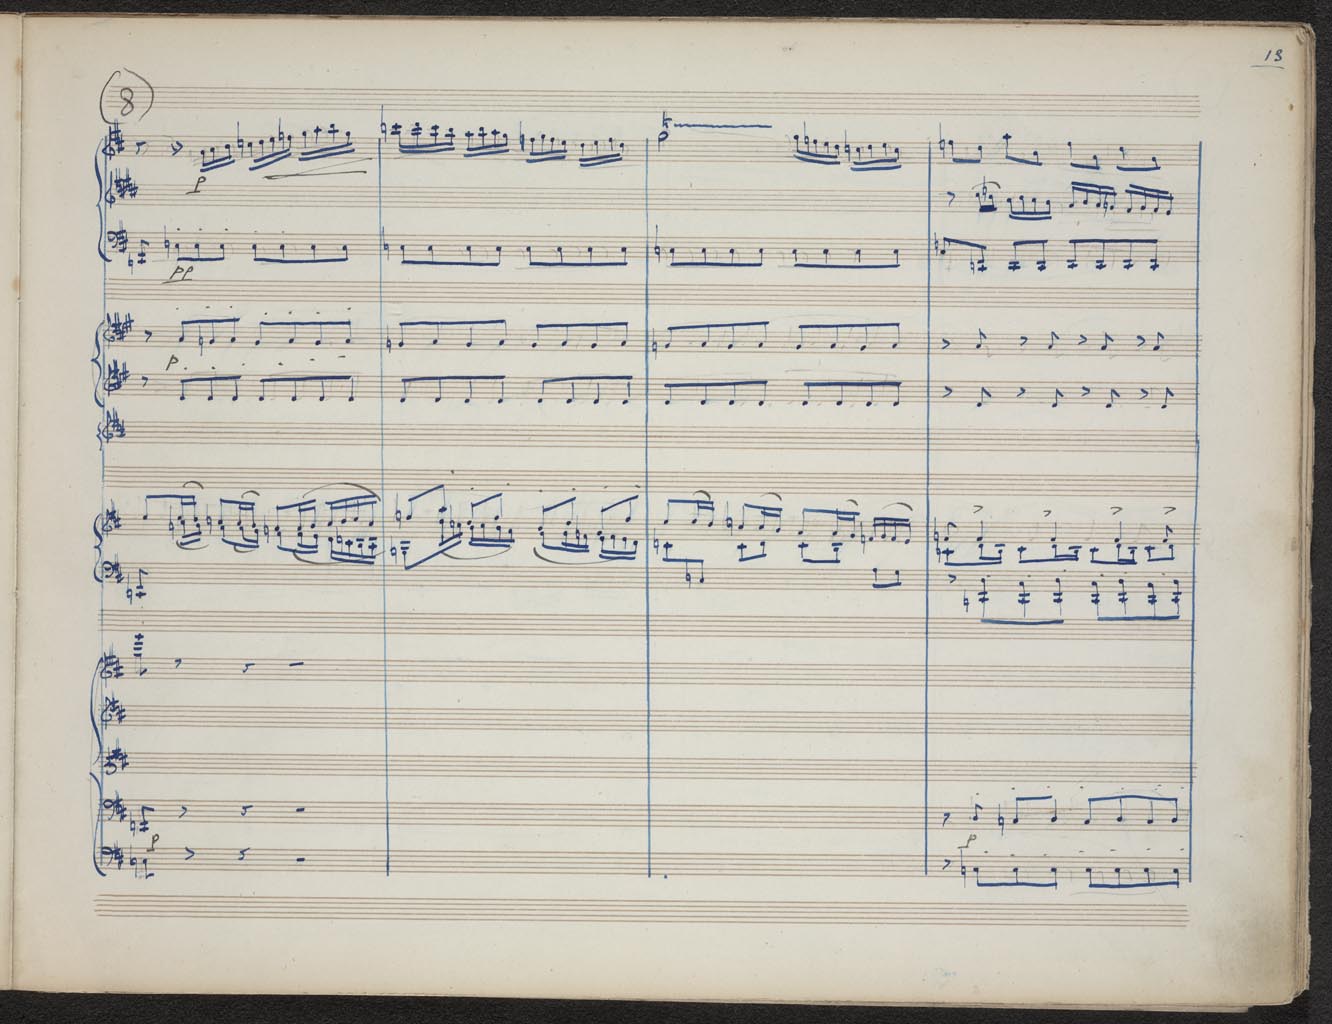 13
8
p
pp
p
p
p